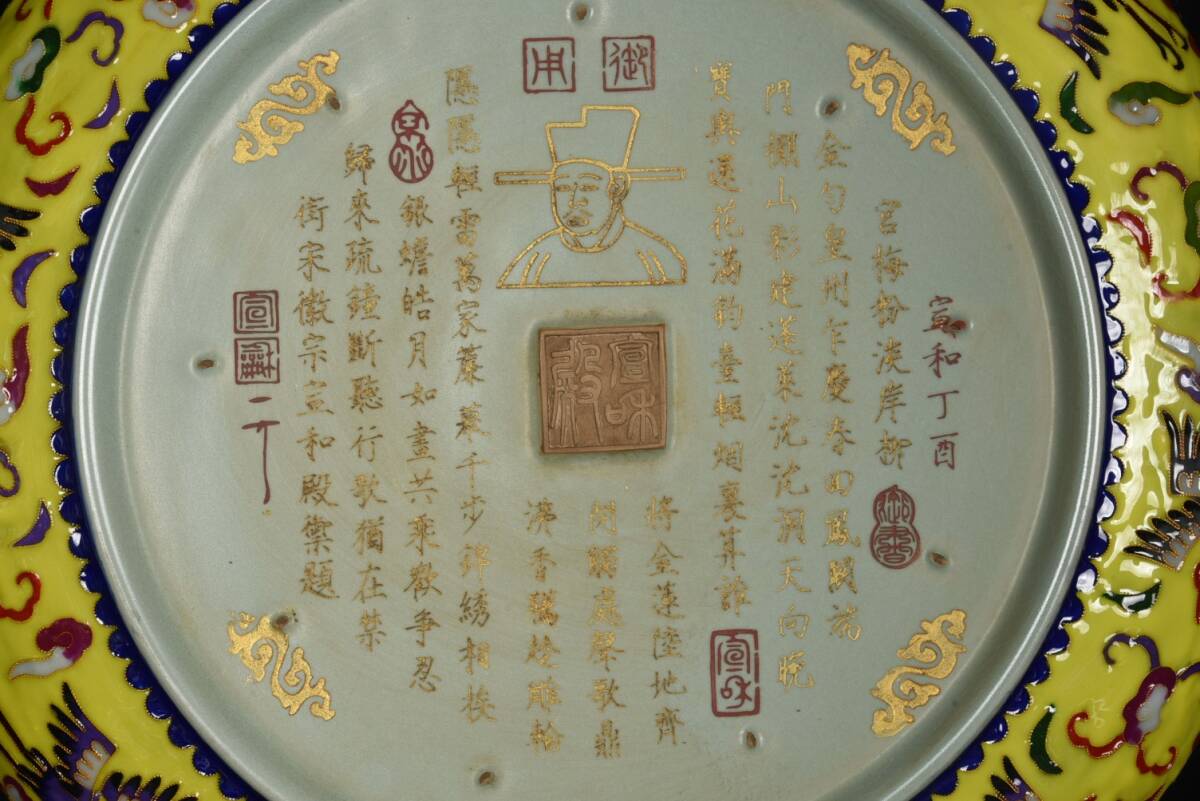 宣和丁酉
宮梅粉淡岸柳
御書
金勻皇州乍慶春回鳳闕端
門棚山彩建蓬萊沈沈洞天向晚
寶輿還花滿鈞臺輕烟裊算誰
宣和
將金蓮陸地齊
開觸處聲歌鼎
沸香韉趁雕輪
宣和殿
隱隱輕雷萬家簾幕千步錦綉相挨
銀蟾皓月如晝共乘歡爭忍
歸來疏鐘斷聽行歌猶在禁
街宋徽宗宣和殿禦題
宣龢